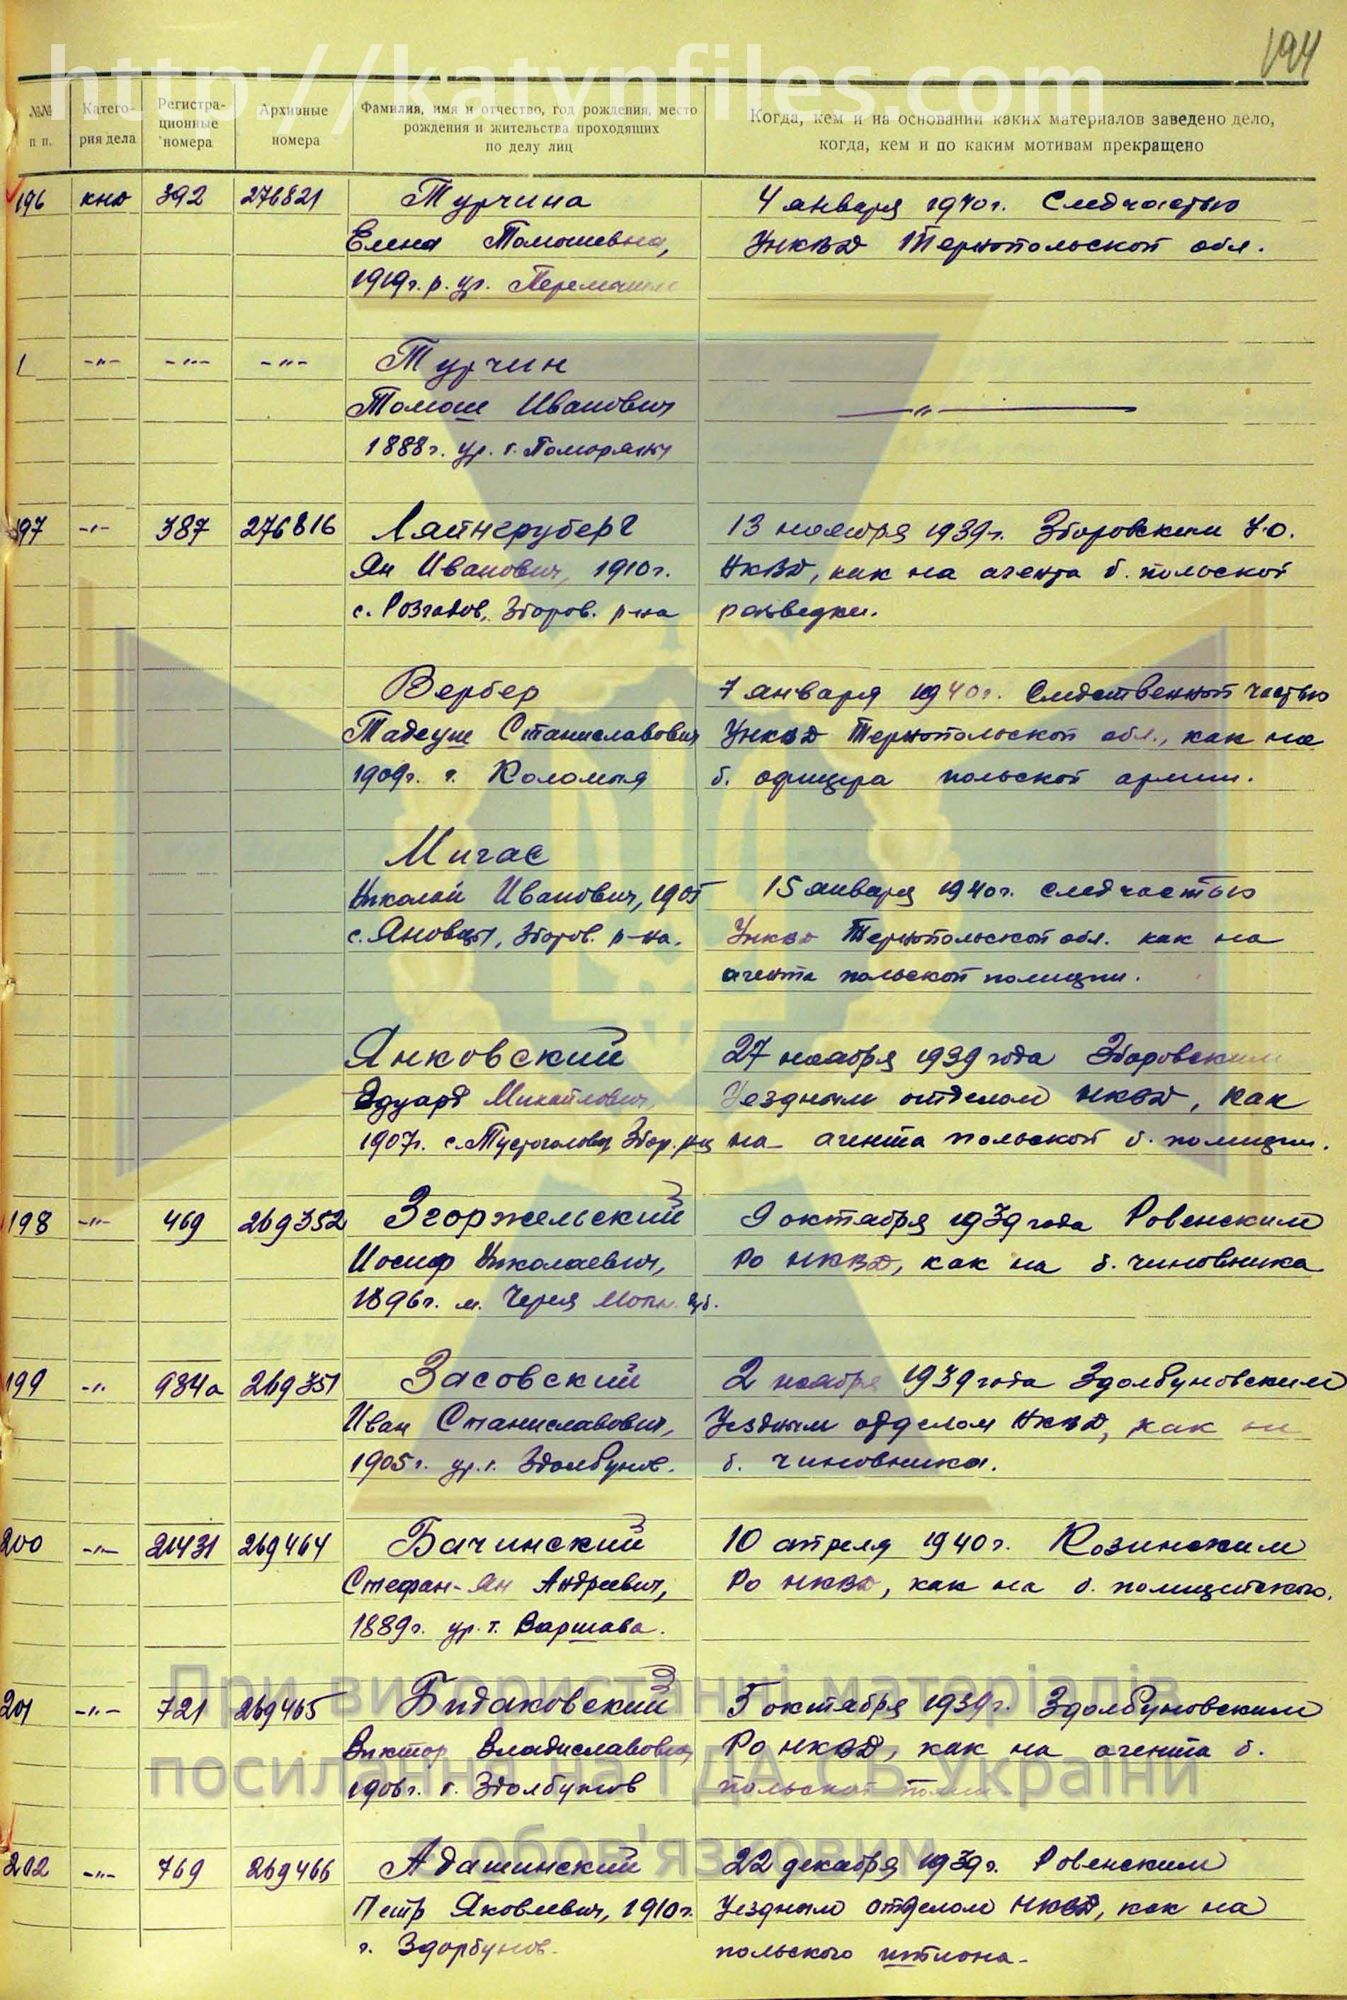 http://katynfiles.com
194
№№ п п.
Катего-рия дела
Регистра-ционные номера
Архивные номера
Фамилия, имя и отчество, год рождения, место рождения и жительства проходящих по делу лиц
Когда, кем и на основании каких материалов заведено дело, когда, кем и по каким мотивам прекращено
196 392 276821 Турчина 4 января 1940г. Следчастью
Елена Томашевна, УНКВД Тернопольской обл.
1919г. р. ур.
-"- -"- -"- Турчин
Томаш Иванович -"-
1888г. ур. г. Поморяны
197 -"- 387 276816 Ляйнгруберг 13 ноября 1939г. Зборовским У.О.
Ян Иванович, 1910г. НКВД, как на агента б. польской
с. Розгадов, Зборов. р-на разведки.
Вербер 7 января 1940г. Следственной частью
Тадеуш Станиславович УНКВД Тернопольской обл., как на
1909г. г. Коломыя б. офицера польской армии.
Мигас
Николай Иванович, 1905 15 января 1940г. следчастью
с. Яновцы, Зборов. р-на. УНКВД Тернопольской обл. как на
агента польской полиции.
Янковский 27 ноября 1939 года Зборовским
Эдуард Михайлович, Уездным отделом НКВД, как
1907г. с. Тустоголовы Збор. р-на на агента польской б. полиции.
198 -"- 469 269352 Згоржельский 9 октября 1939 года Ровенским
Иосиф Николаевич, РО НКВД, как на б. чиновника
1896г. м. Черея
199 -"- 934а 269351 Засовский 2 ноября 1939 года Здолбуновским
Иван Станиславович, Уездным отделом НКВД, как на
1905г. ур. г. Здолбунов. б. чиновника.
200 -"- 21431 269464 Бачинский 10 апреля 1940г. Козинским
Стефан-Ян Андреевич, РО НКВД, как на б. полицейского.
1889г. ур. г. Варшава.
201 -"- 721 269465 Бидаковский 5 октября 1939г. Здолбуновским
Виктор Владиславович, РО НКВД, как на агента б.
1906г. г. Здолбунов польской
202 -"- 769 269466 Адашинский 22 декабря 1939г. Ровенским
Петр Яковлевич, 1910г. Уездным отделом НКВД, как на
г. Здорбунов. польского шпиона.
При використанні матеріалів
посилання на ГДА СБ України
є обов'язковим